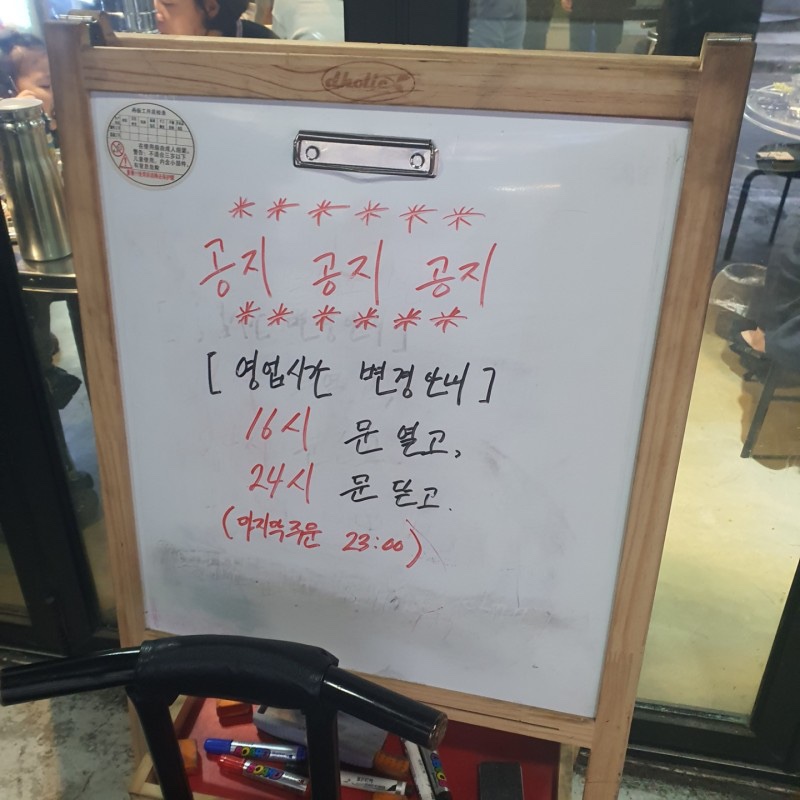 dholic
* * * * * *
공지 공지 공지
* * * * * *
[ 영업시간 변경안내 ]
16시 문 열고,
24시 문 닫고.
(마지막주문 23:00)